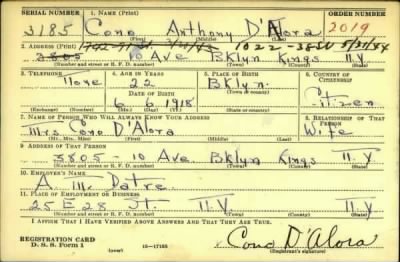 SERIAL NUMBER 1. NAME (Print) ORDER NUMBER
3185 Cono Anthony D'Alora 2019
(First) (Middle) (Last)
2. ADDRESS (Print) 1022-38 St 5/31/44
3805 10 Ave Bklyn Kings N.Y
(Number and street or R. F. D. number) (Town) (County) (State)
3. TELEPHONE 4. AGE IN YEARS 5. PLACE OF BIRTH 6. COUNTRY OF CITIZENSHIP
None 22 Bklyn.
DATE OF BIRTH (Town or county)
6 6 1918 Citizen
(Exchange) (Number) (Mo.) (Day) (Yr.) (State or country)
7. NAME OF PERSON WHO WILL ALWAYS KNOW YOUR ADDRESS 8. RELATIONSHIP OF THAT PERSON
Mrs Cono D'Alora Wife
(Mr., Mrs., Miss) (First) (Middle) (Last)
9. ADDRESS OF THAT PERSON
3805-10 Ave. Bklyn Kings N.Y
(Number and street or R. F. D. number) (Town) (County) (State)
10. EMPLOYER'S NAME
A. M. Datre
11. PLACE OF EMPLOYMENT OR BUSINESS
25 E 28 St N.Y. N.Y
(Number and street or R. F. D. number) (Town) (County) (State)
I AFFIRM THAT I HAVE VERIFIED ABOVE ANSWERS AND THAT THEY ARE TRUE.
REGISTRATION CARD
D. S. S. Form 1 (over) 16—17105 Cono D'Alora
(Registrant's signature)